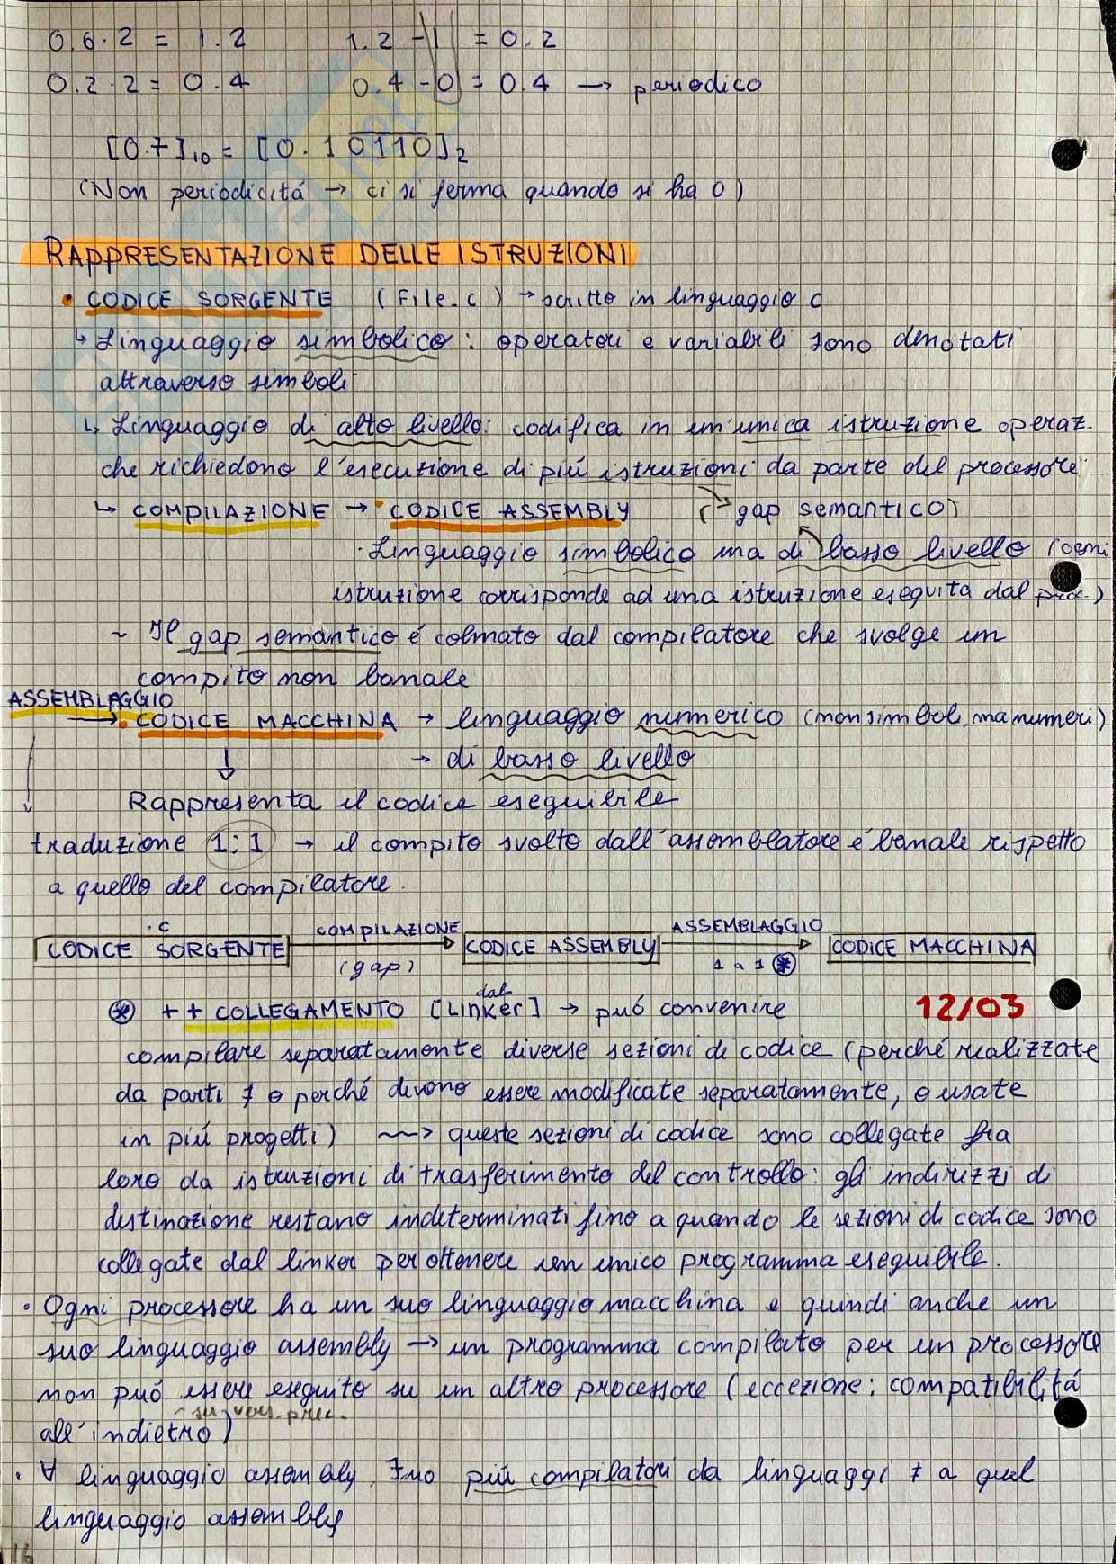 0.6 · 2 = 1.2 1.2 - 1 = 0.2
0.2 · 2 = 0.4 0.4 - 0 = 0.4 → periodico
[0.7]₁₀ = [0.1 0110]₂
(Non periodicitá → ci si ferma quando si ha 0)
RAPPRESENTAZIONE DELLE ISTRUZIONI
• CODICE SORGENTE (File.c) → scritto in linguaggio c
↳ Linguaggio simbolico: operatori e variabili sono denotati
attraverso simboli
↳ Linguaggio di alto livello: codifica in un'unica istruzione operaz.
che richiedono l'esecuzione di piú istruzioni da parte del processore
↳ COMPILAZIONE → • CODICE ASSEMBLY (→ gap semantico)
· Linguaggio simbolico ma di basso livello (ogni
istruzione corrisponde ad una istruzione eseguita dal proc.)
~ Il gap semantico é colmato dal compilatore che svolge un
compito non banale
ASSEMBLAGGIO
→ • CODICE MACCHINA → linguaggio numerico (non simboli ma numeri)
↓ → di basso livello
Rappresenta il codice eseguibile
traduzione 1:1 → il compito svolto dall'assemblatore é banale rispetto
a quello del compilatore.
.c COMPILAZIONE ASSEMBLAGGIO
CODICE SORGENTE → CODICE ASSEMBLY → CODICE MACCHINA
(gap) 1 a 1 ⊛
⊛ ++ COLLEGAMENTO [dal Linker] → puó convenire 12/03
compilare separatamente diverse sezioni di codice (perché realizzate
da parti ≠ o perché devono essere modificate separatamente, o usate
in piú progetti) ~~> queste sezioni di codice sono collegate fra
loro da istruzioni di trasferimento del controllo: gli indirizzi di
destinazione restano indeterminati fino a quando le sezioni di codice sono
collegate dal linker per ottenere un unico programma eseguibile.
• Ogni processore ha un suo linguaggio macchina e quindi anche un
suo linguaggio assembly → un programma compilato per un processore
non puó essere eseguito su un altro processore (eccezione: compatibilitá
su vers. prec.
all'indietro)
• ∀ linguaggio assembly ∃no piú compilatori da linguaggi ≠ a quel
linguaggio assembly
16